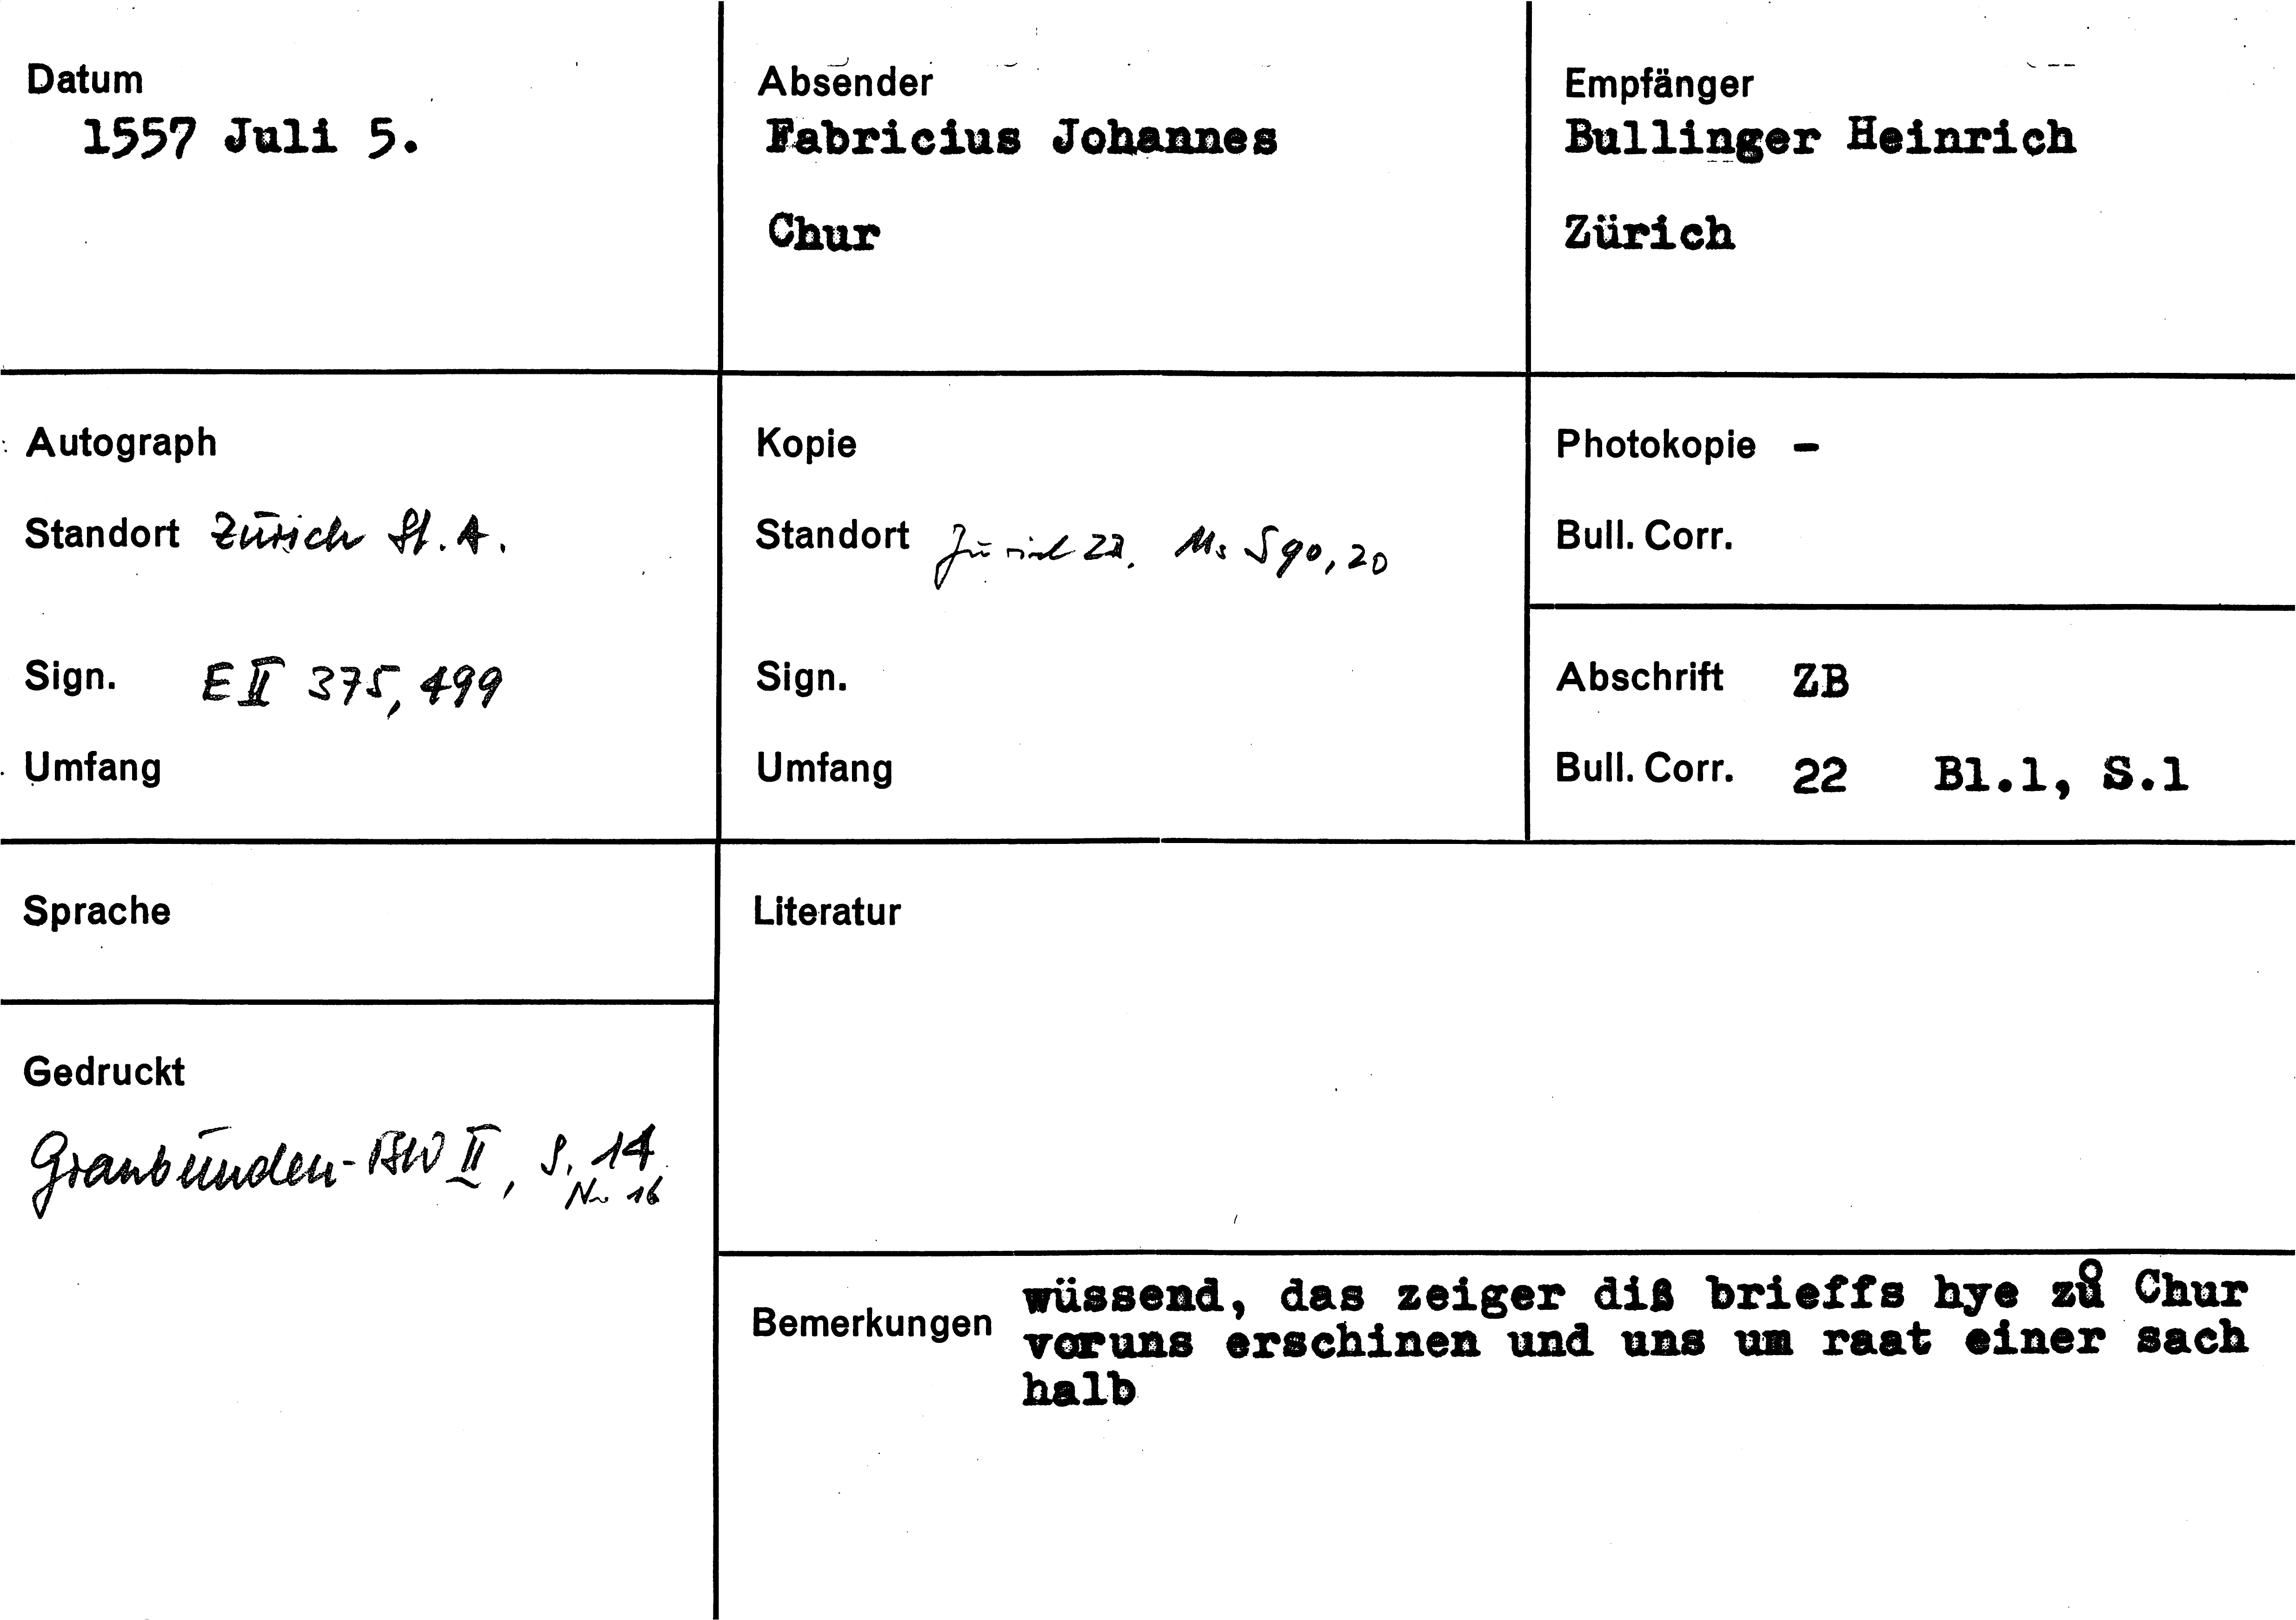 Datum
1557 Juli 5.
Absender
Fabricius Johannes
Chur
Empfänger
Bullinger Heinrich
Zürich
Autograph
Standort Zürich St. A.
Sign. E II 375, 499
Umfang
Kopie
Standort Zürich ZB. Ms S 90, 20
Sign.
Umfang
Photokopie -
Bull. Corr.
Abschrift ZB
Bull. Corr. 22 Bl.1, S.1
Sprache
Literatur
Gedruckt
Graubünden-BW II, S. 14
Nr 16
Bemerkungen
wüssend, das zeiger diß brieffs hye zů Chur
voruns erschinen und uns um raat einer sach
halb